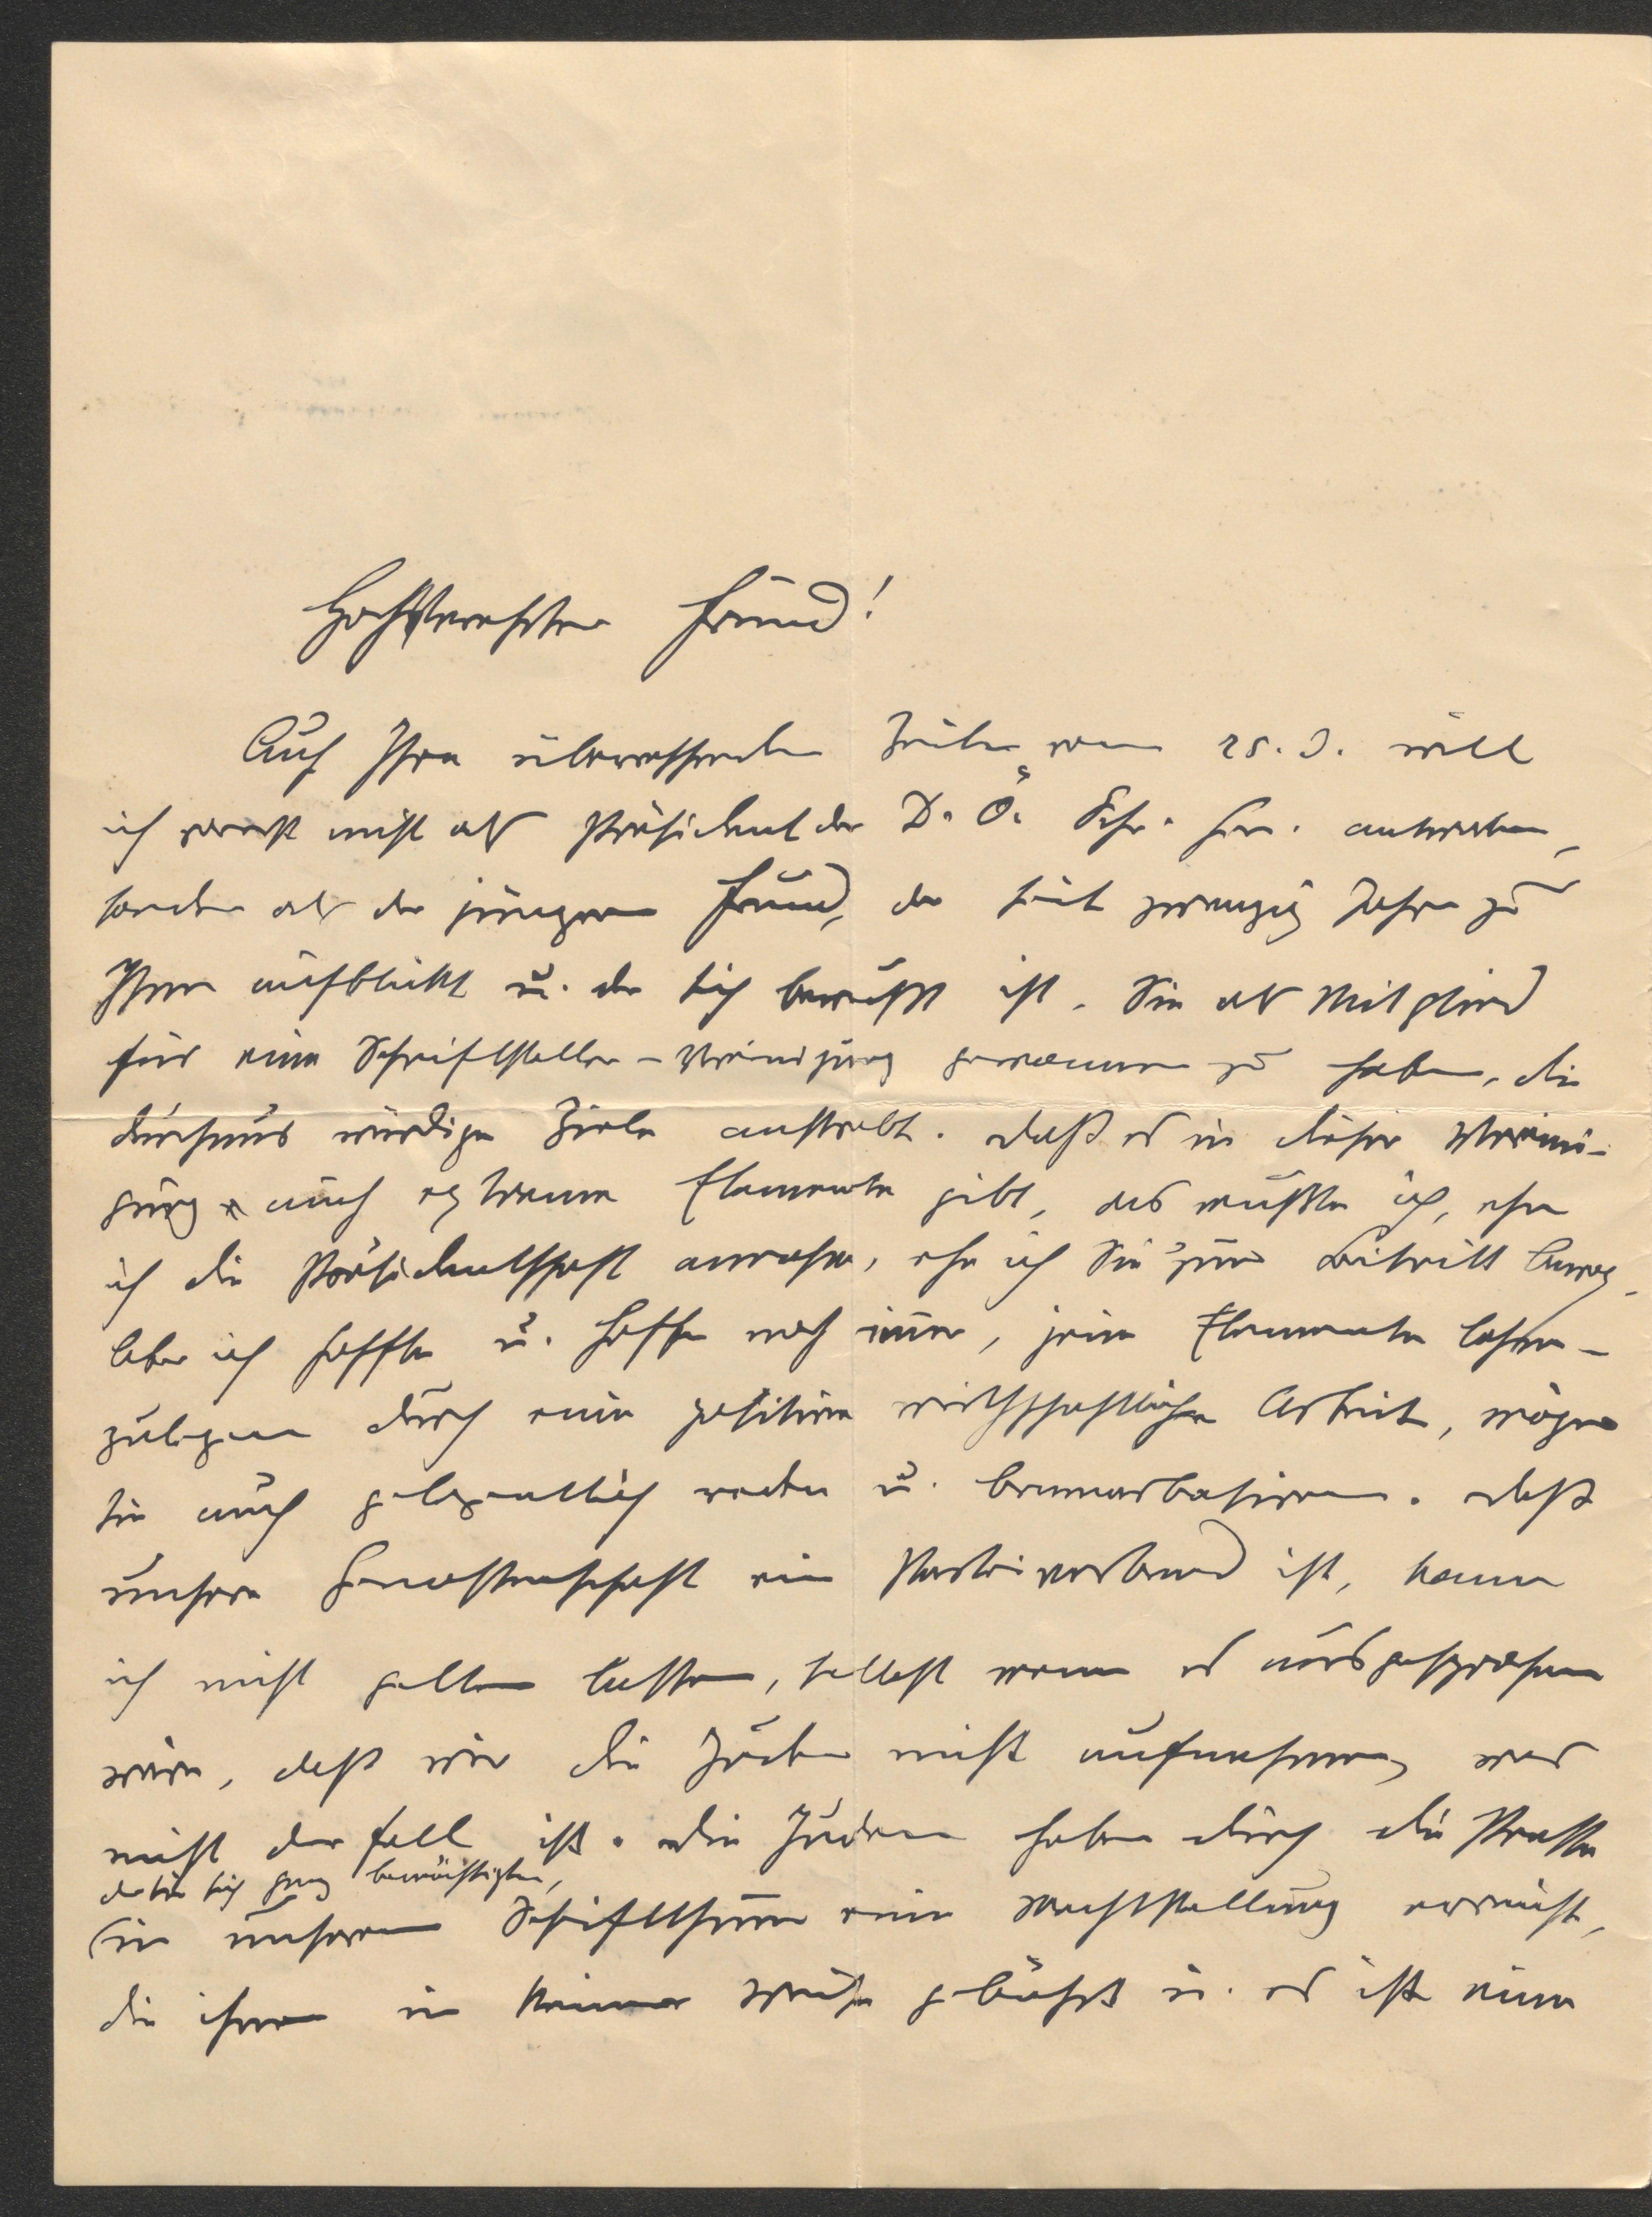 Hochverehrter Freund!
Auf Ihre überraschenden Zeilen vom 25. d. will
ich vorerst nicht als Präsident der D. Ö. Schr. Gen. antworten,
sondern als der jüngere Freund, der seit zwanzig Jahren zu
Ihnen aufblickt u. der sich bewußt ist, Sie als Mitglied
für eine Schriftsteller-Vereinigung gewonnen zu haben, die
durchaus würdige Ziele anstrebt. Daß es in dieser Vereini-
gung auch extreme Elemente gibt, das wußte ich, ehe
ich die Präsidentschaft annahm, ehe ich Sie zum Beitritt bewog.
Aber ich hoffte u. hoffe noch immer, jene Elemente lahm-
zulegen durch eine positive wirthschaftliche Arbeit, mögen
sie auch gelegentlich reden u. bramarbasiren. Daß
unsere Genossenschaft ein Parteiverband ist, kann
ich nicht gelten lassen, selbst wenn es ausgesprochen
wäre, daß wir die Juden nicht aufnehmen, was
nicht der Fall ist. Die Juden haben durch die Presse
der sie sich ganz bemächtigten,
in unserem Schriftthum eine Machtstellung erreicht,
die ihnen in keiner Weise gebührt u. es ist eine